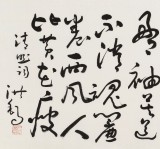 盈袖莫道
不消魂簾
卷西風人
比黄花瘦
清照词